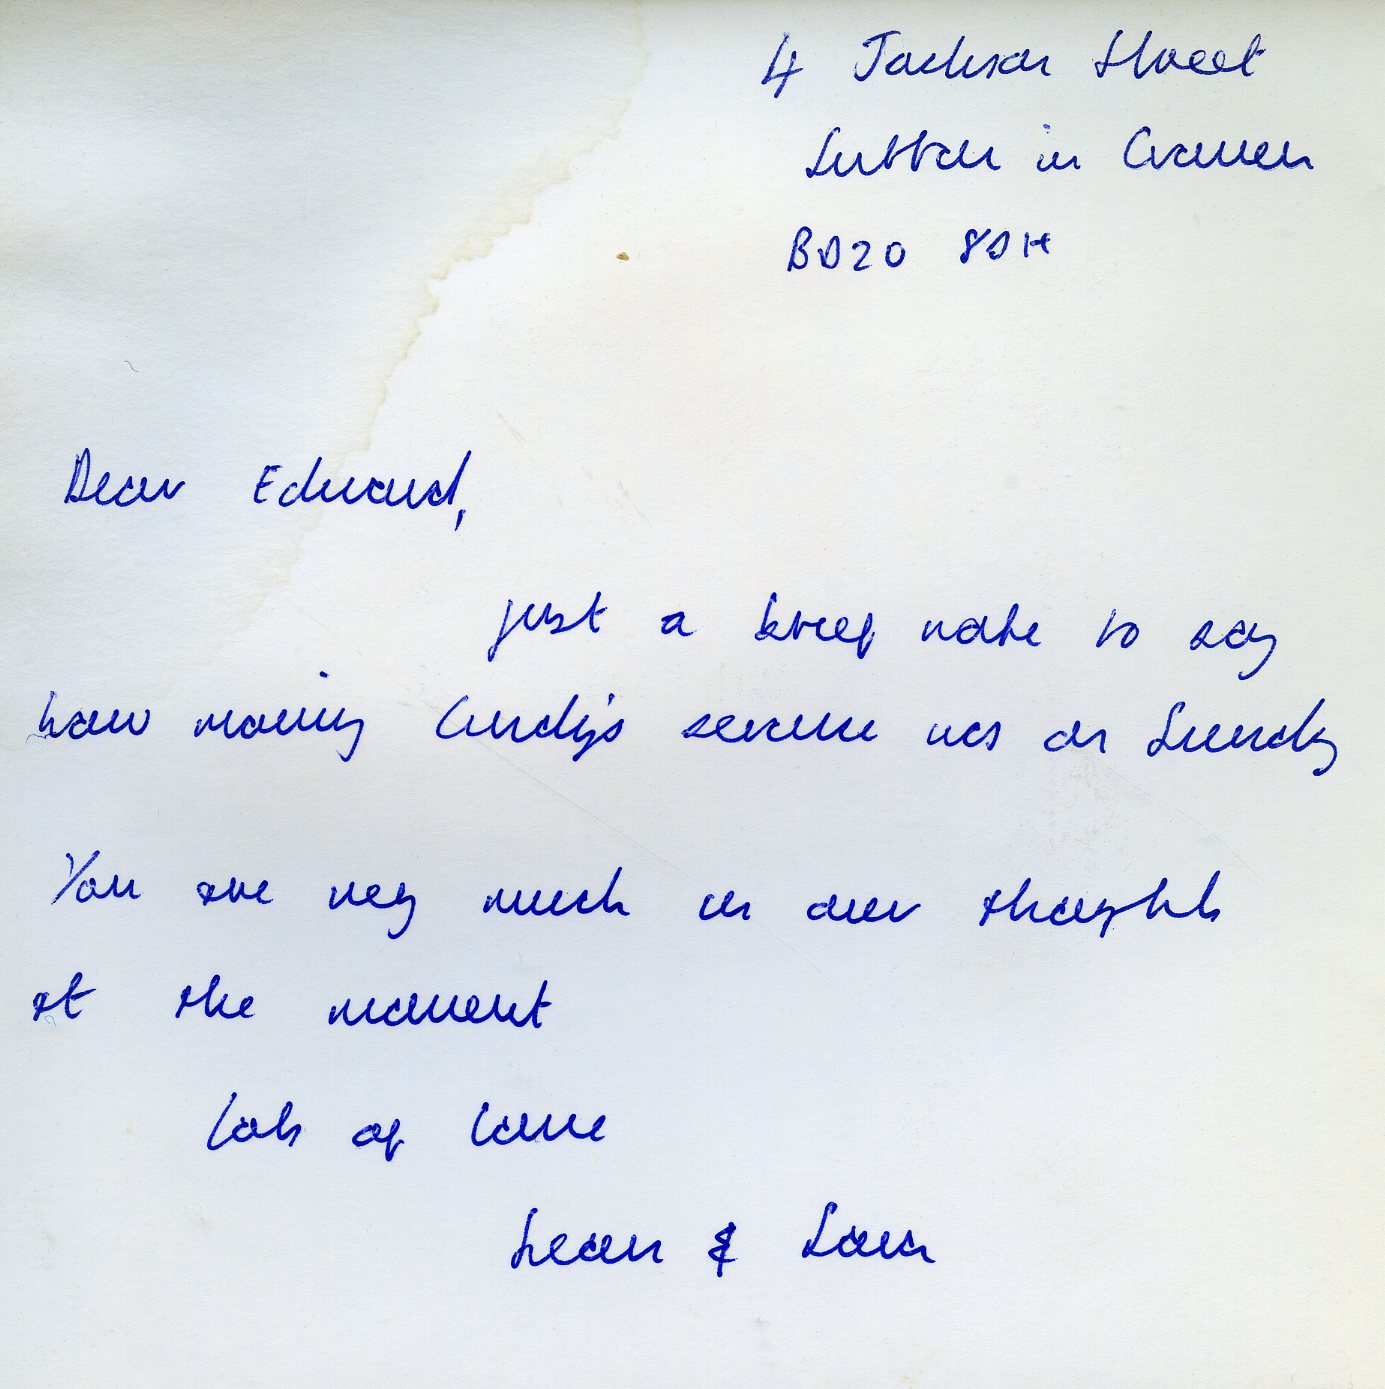 4 Jackson Street
Sutton in Craven
BD20 8DH
Dear Edward,
just a brief note to say
how moving Cindy's service was on Sunday
You are very much in our thoughts
at the moment
lots of love
Sean & Sara